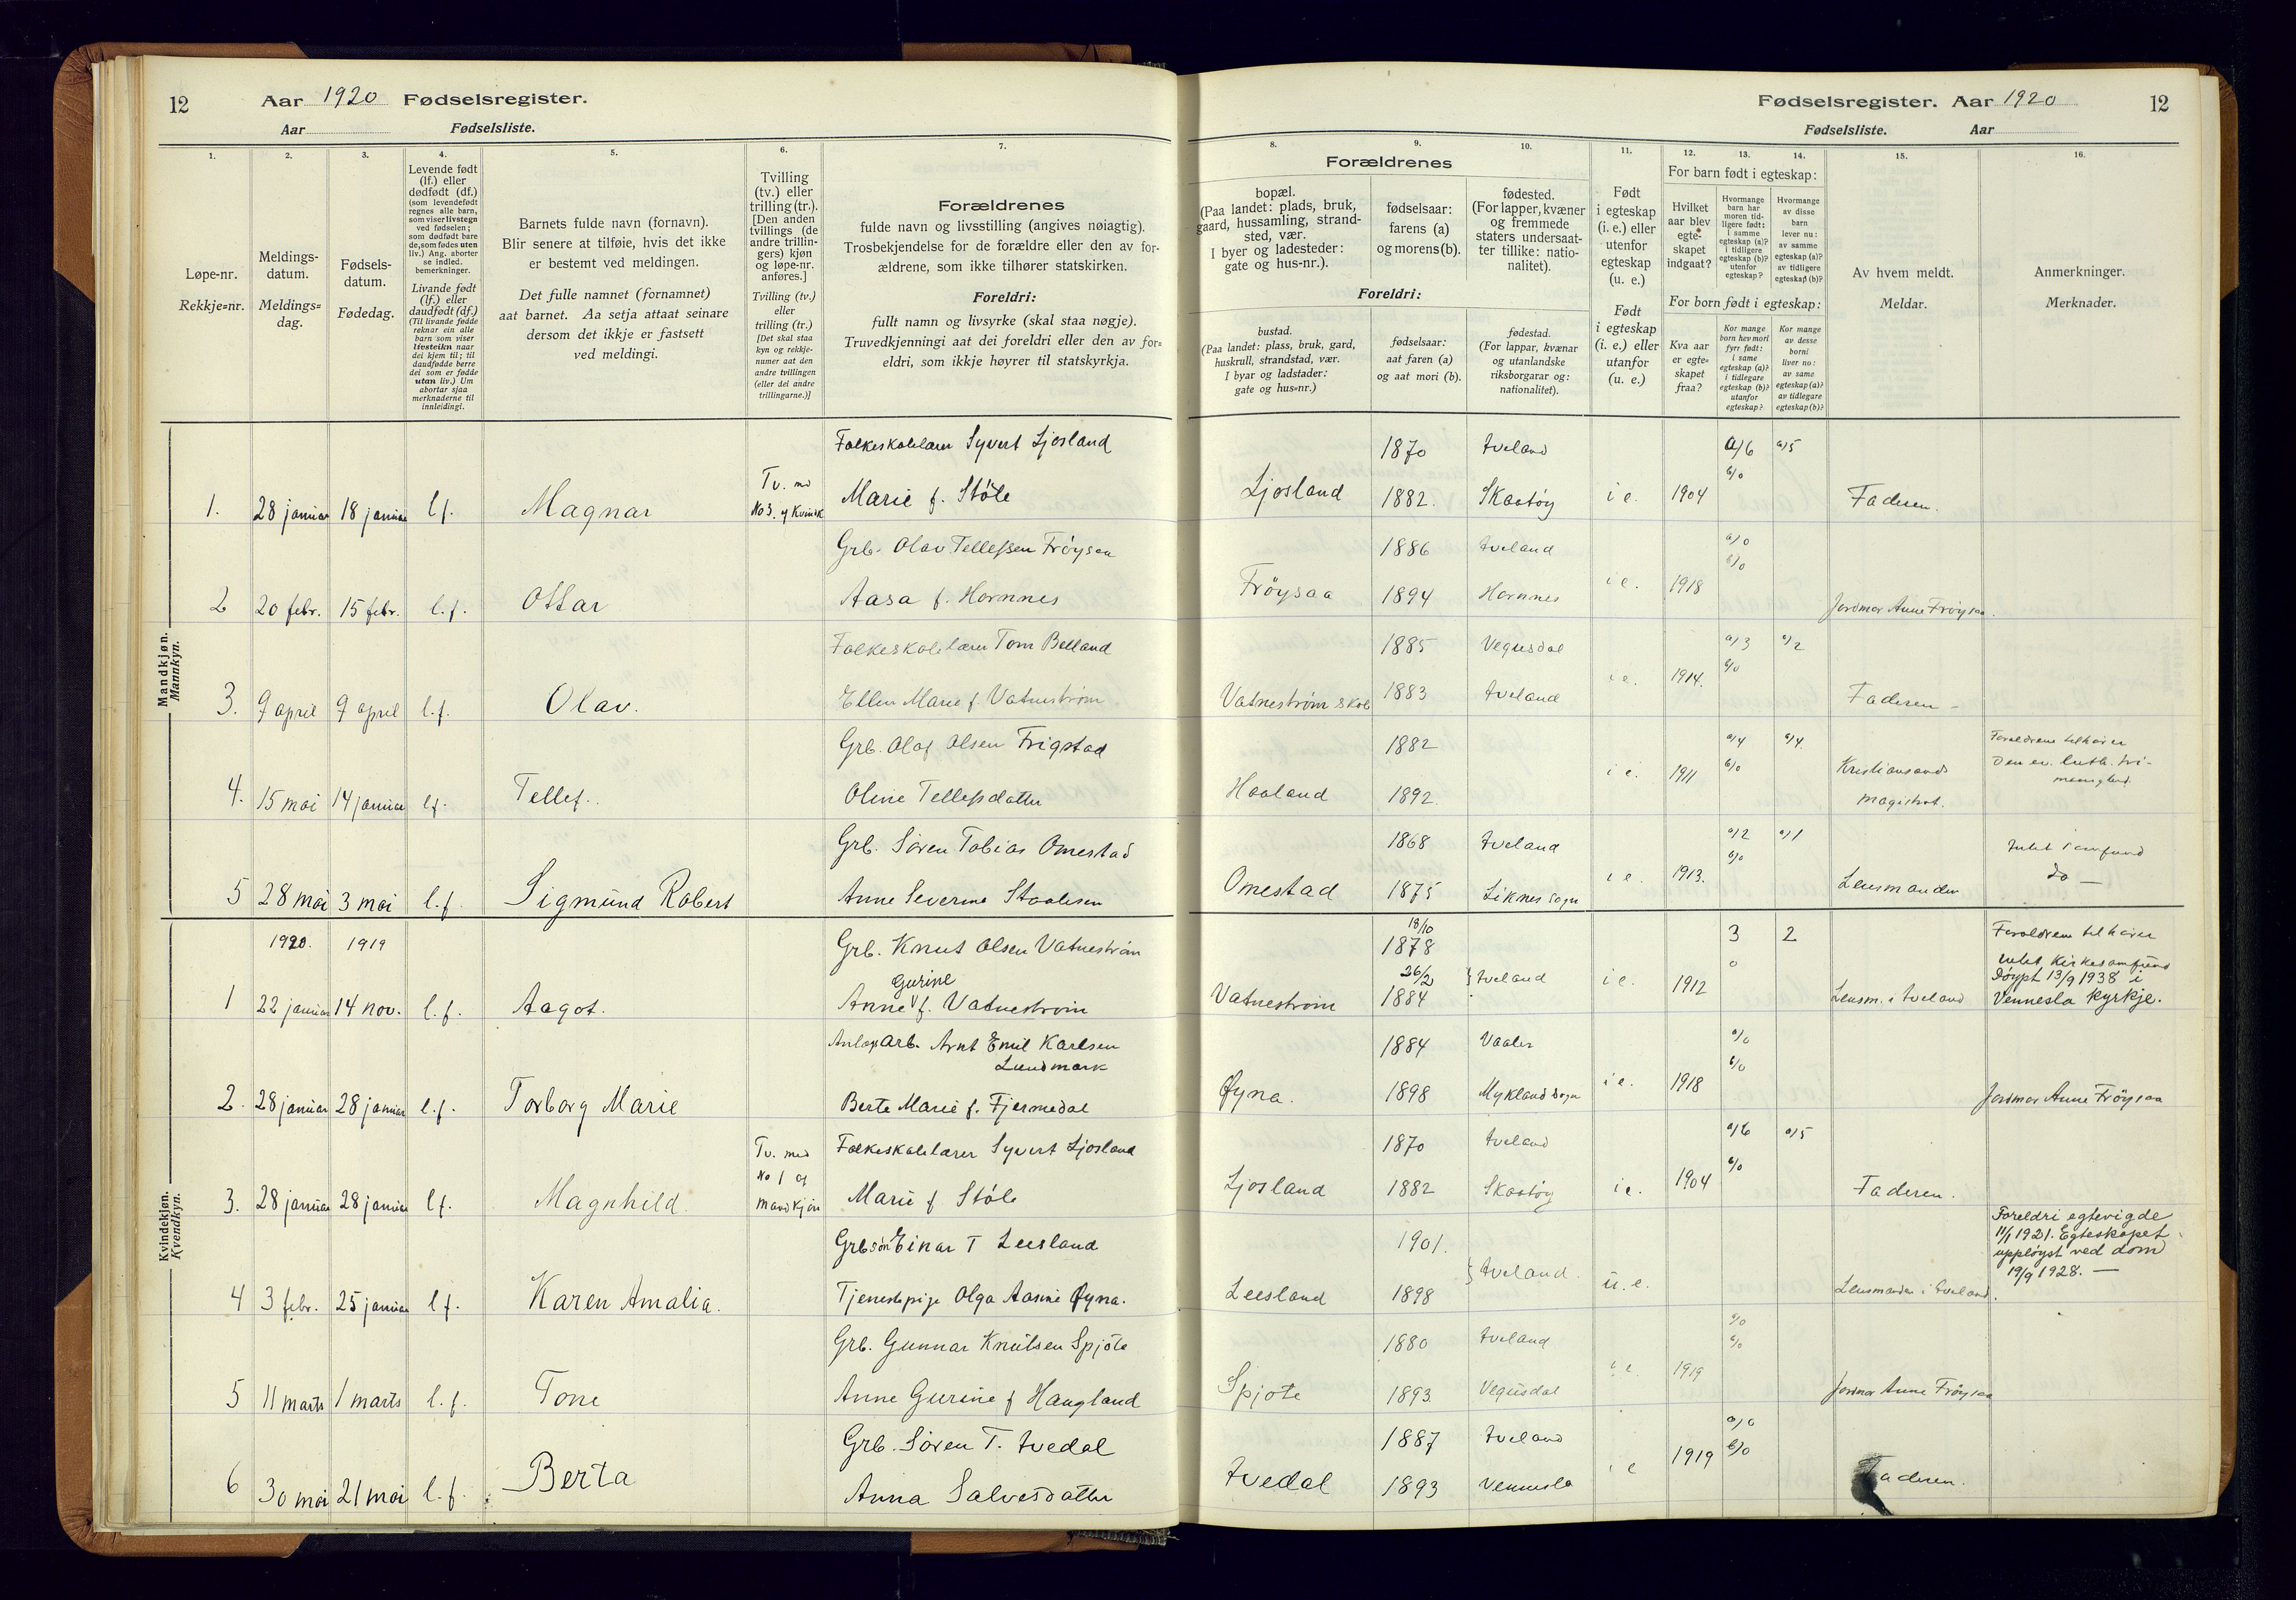 12 Aar 1920 Fødselsregister.
Aar Fødselsliste.
Fødselsregister. Aar 1920 12
Fødselsliste. Aar
1. 2. 3. 4. 5. 6. 7.
8. 9. 10. 11. 12. 13. 14. 15. 16.
Løpe-nr.
Rekkje=nr.
Meldings-
datum.
Meldings=
dag.
Fødsels-
datum.
Fødedag.
Levende født
(lf.) eller
dødfødt (df.)
(som levendefødt
regnes alle barn,
som viser livstegn
ved fødselen;
som dødfødt bare
de, som fødes uten
liv.) Ang. aborter
se indled.
bemerkninger.
Livande født
(lf.) eller
daudfødt (df.)
(Til livande fødde
reknar ein alle
barn som viser
livsteikn naar
dei kjem til; til
daudfødde berre
dei som er fødde
utan liv.) Um
abortar sjaa
merknaderne til
innleidingi.
Barnets fulde navn (fornavn).
Blir senere at tilføie, hvis det ikke
er bestemt ved meldingen.
Det fulle namnet (fornamnet)
aat barnet. Aa setja attaat seinare
dersom det ikkje er fastsett
ved meldingi.
Tvilling
(tv.) eller
trilling (tr.).
[Den anden
tvillings (de
andre trillin-
gers) kjøn
og løpe-nr.
anføres.]
Tvilling (tv.)
eller
trilling (tr.)
[Det skal staa
kyn og rekkje-
numer aat den
andre tvillingen
(eller dei andre
trillingarne.)]
Forældrenes
fulde navn og livsstilling (angives nøiagtig).
Trosbekjendelse for de forældre eller den av for-
ældrene, som ikke tilhører statskirken.
Foreldri:
fullt namn og livsyrke (skal staa nøgje).
Truvedkjenningi aat dei foreldri eller den av for=
eldri, som ikkje høyrer til statskyrkja.
Forældrenes
bopæl.
(Paa landet: plads, bruk,
gaard, hussamling, strand-
sted, vær.
I byer og ladesteder:
gate og hus-nr.).
fødselsaar:
farens (a)
og morens (b).
fødested.
(For lapper, kvæner
og fremmede
staters undersaat-
ter tillike: natio-
nalitet).
Foreldri:
bustad.
(Paa landet: plass, bruk, gard,
huskrull, strandstad, vær.
I byar og ladstader:
gate og hus=nr.)
fødselsaar:
aat faren (a)
og aat mori (b).
fødestad.
(For lappar, kvænar
og utanlandske
riksborgarar og:
nationalitet).
Født
i egteskap
(i. e.) eller
utenfor
egteskap
(u. e.)
Født
i egteskap
(i. e.) eller
utanfor
(u. e.)
For barn født i egteskap:
Hvilket
aar blev
egte-
skapet
indgaat?
Hvormange
barn har
moren tid-
ligere født:
i samme
egteskap (a)?
i tidligere
egteskap (b)?
utenfor
egteskap?
Hvormange
av disse
barn
lever nu:
av samme
egteskap (a)?
av tidligere
egteskap (b)?
For born født i egteskap:
Kva aar
er egte-
skapet
fraa?
Kor mange
born hev mori
fyrr født:
i same
egteskap (a)?
i tidlegare
egteskap (b)?
utanfor
egteskap?
Kor mange
av desse
borni
liver no:
av same
egteskap (a)?
av tidlegare
egteskap (b)?
Av hvem meldt.
Meldar.
Anmerkninger.
Merknader.
Mandkjøn.
Mannkyn.
Folkeskolelærer Syvert Ljosland 1870 Iveland a/6 a/5
1. 28 januar 18 januar l.f. Magnar Tv. med No 3. af Kvindk Marie f. Støle Ljosland 1882. Skaatøy i e. 1904 b/0 Faderen.
Grb. Olav Tellefsen Frøysaa 1886 Iveland a/0
2 20 febr. 15 febr. l.f. Ottar Aasa f. Hornnes Frøysaa 1894 Hornnes i e. 1918 b/0 Jordmor Anne Frøysaa.
Folkeskolelærer Tom Belland 1885 Vegusdal a/3 a/2
3. 9 april 9 april l.f. Olav. Ellen Marie f. Vatnestrøm Vatnestrøm skole 1883 Iveland i e. 1914. b/0 Faderen
Grb. Olaf Olsen Frigstad 1882 a/4 a/4 Foreldrene tilhører
4. 15 mai 14 januar l.f. Tellef. Oline Tellefsdatter Haaland 1892. i e. 1911 b/0 Kristiansands magistrat. Den ev. luth. fri-
menighed.
Grb. Søren Tobias Omestad 1868 Iveland a/2 a/1 intet samfund
5 28 mai 3 mai l.f. Sigmund Robert Anne Severine Staalesen Omestad 1875 Liknes sogn i e. 1913. b/0 Lensmanden do —
Kvindekjøn.
Kvendkyn.
1920. 1919 Grb. Knut Olsen Vatnestrøm 18/10 1878 3 2 Foreldrene tilhører
intet Kirkesamfund
1 22 januar 14 nov. l.f. Aagot. Anne Gurine f. Vatnestrøm Vatnestrøm 26/2 1884 Iveland i e. 1912 0 Lensm. i Iveland Døypt 13/9 1938 i
Vennesla kyrkje.
Anlægsarb. Arnt Emil Karlsen 1884 Vaaler a/0
Lundmark
2. 28 januar 28 januar l.f. Torborg Marie Berte Marie f. Fjermedal Øyna. 1898 Mykland sogn i e. 1918 b/0 Jordmor Anne Frøysaa
Folkeskolelærer Syvert Ljosland 1870 Iveland a/6 a/5
3. 28 januar 28 januar l.f. Magnhild. Tv. med No 1 af mandkjøn Marie f Støle Ljosland 1882 Skaatøy i e. 1904 b/0 Faderen.
Grb søn Einar T Leesland 1901. Foreldri egtevigde
11/1 1921. Egteskapet
uppløyst ved dom
19/9 1928. —
4 3 febr. 25 januar l.f. Karen Amalia. Tjenestepige Olga Aasine Øyna. Leesland 1898 Iveland. u. e. Lensmanden i Iveland.
Grb. Gunnar Knutsen Spjote 1880 Iveland a/0
5 11 marts 1 marts l.f. Tone Anne Gurine f Haugland Spjote 1893. Vegusdal i e 1919 b/0 Jordmor Anne Frøysaa
Grb. Søren T. Ivedal 1887 Iveland a/0
6 30 mai 21 mai l.f. Berta Anna Salvesdatter Ivedal 1893 Vennesla i e 1919 b/0 Faderen.